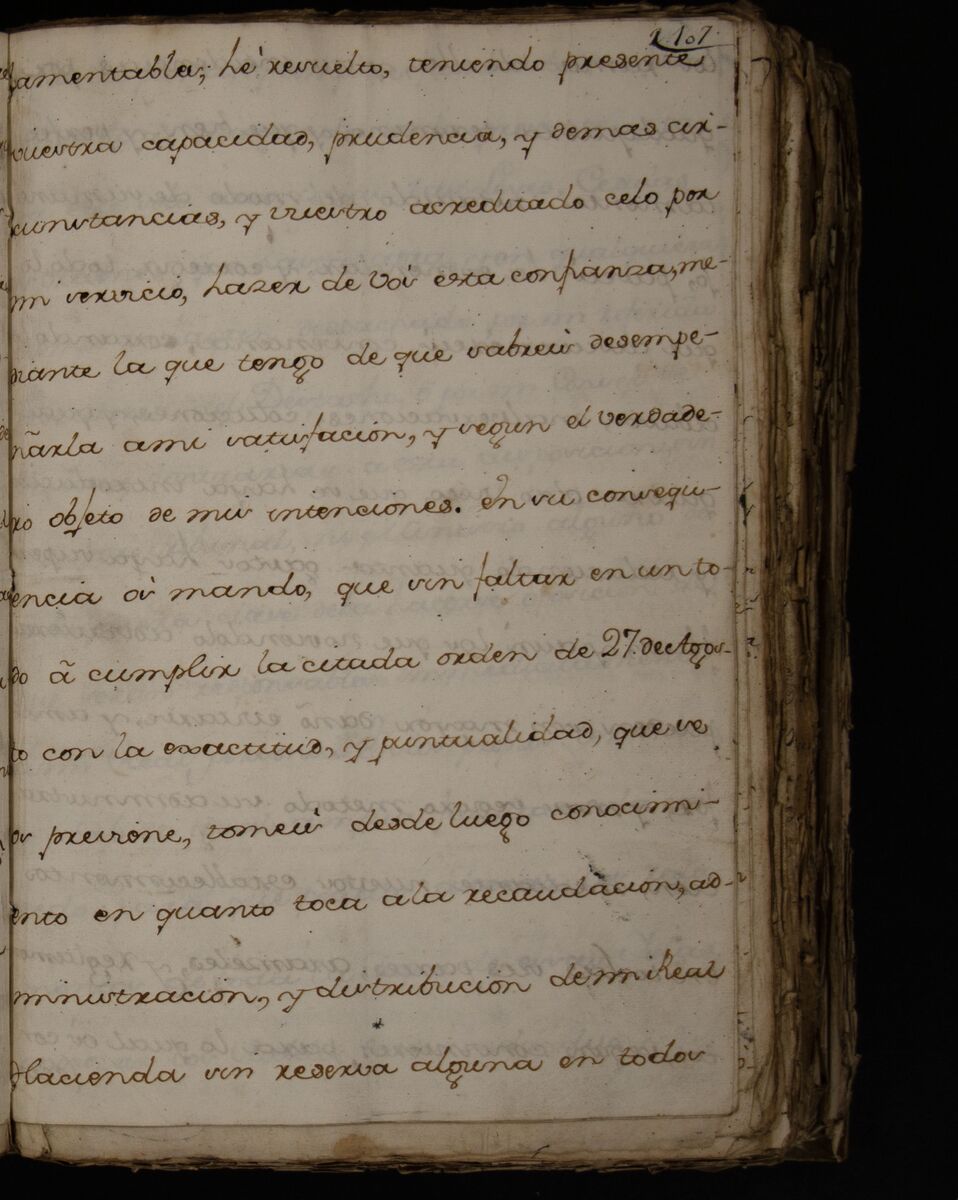 107.
lamentable; hè resuelto, teniendo presente
vuestra capacidad, prudencia, y demas cir-
cunstancias, y vuestro acreditado celo por
mi servicio, hazer de Vos esta confianza, me-
diante la que tengo de que sabreis desempe-
ñarla a mi satisfacion, y segun el verdade-
ro objeto de mis intenciones. En su consequ-
encia os mando, que sin faltar en un to-
do ã cumplir la citada orden de 27. de Agos-
to con la exactitud, y puntualidad, que se
os previene, tomeis desde luego conocimi-
ento en quanto toca a la recaudacion, ad-
ministracion, y distribucion de mi Real
Hacienda sin reserva alguna en todos